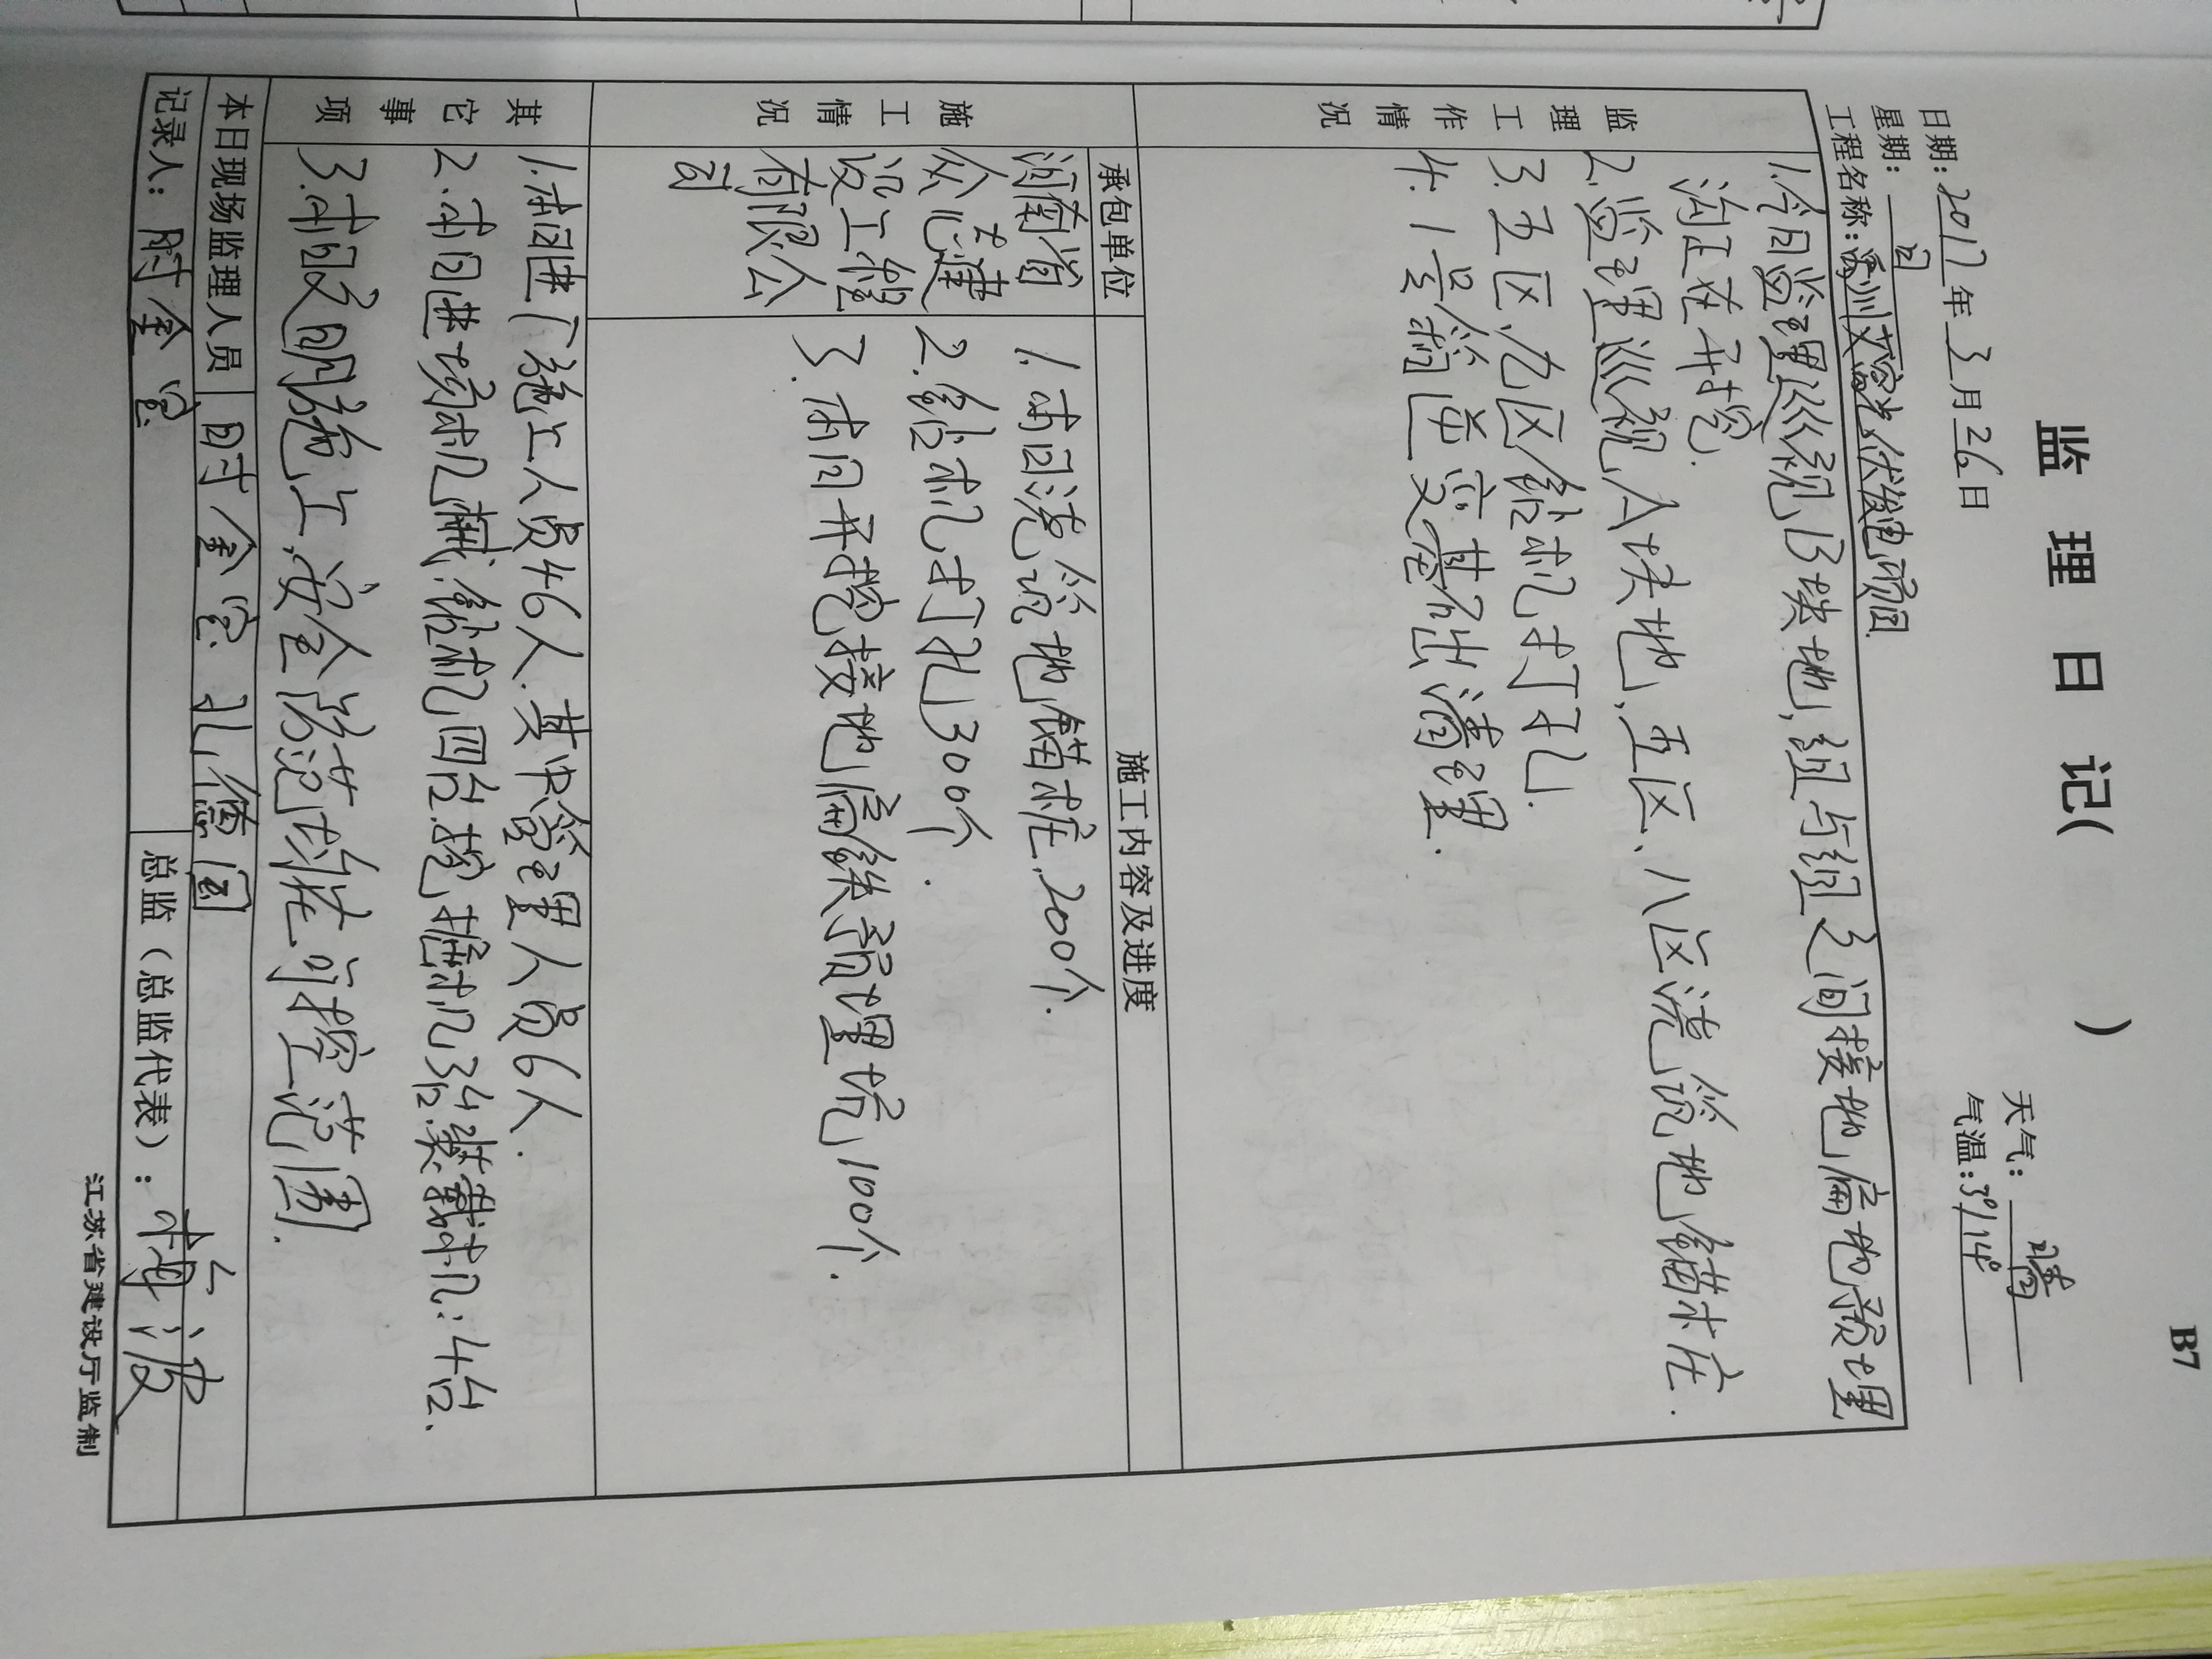 B7
监 理 日 记（ ）
日期：2017年3月26日 天气：晴
星期：日 气温：3°/14°
工程名称：光伏发电项目
监理工作情况
1.今日监理巡视,B块地,组与组之间接地扁地预埋
沟正在开挖.
2.监理巡视,A块地,五区、八区浇筑地锚桩.
3.五区,九区铃机打孔.
4.1号箱逆变基础清理.
施工情况
承包单位 施工内容及进度
河南省
众化建
设工程
有限公
司
1.本日浇筑地锚桩,200个.
2.铃机打孔300个.
3.本日开挖接地扁铁预埋坑100个.
其它事项
1.本日进厂施工人员46人.其中管理人员6人.
2.本日进场机械:铃机四台.挖掘机3台.装载机:4台.
3.本日文明施工,安全防范措施可控范围.
本日现场监理人员 时金宝 孔德国
记录人：时金宝 总监（总监代表）：
江苏省建设厅监制